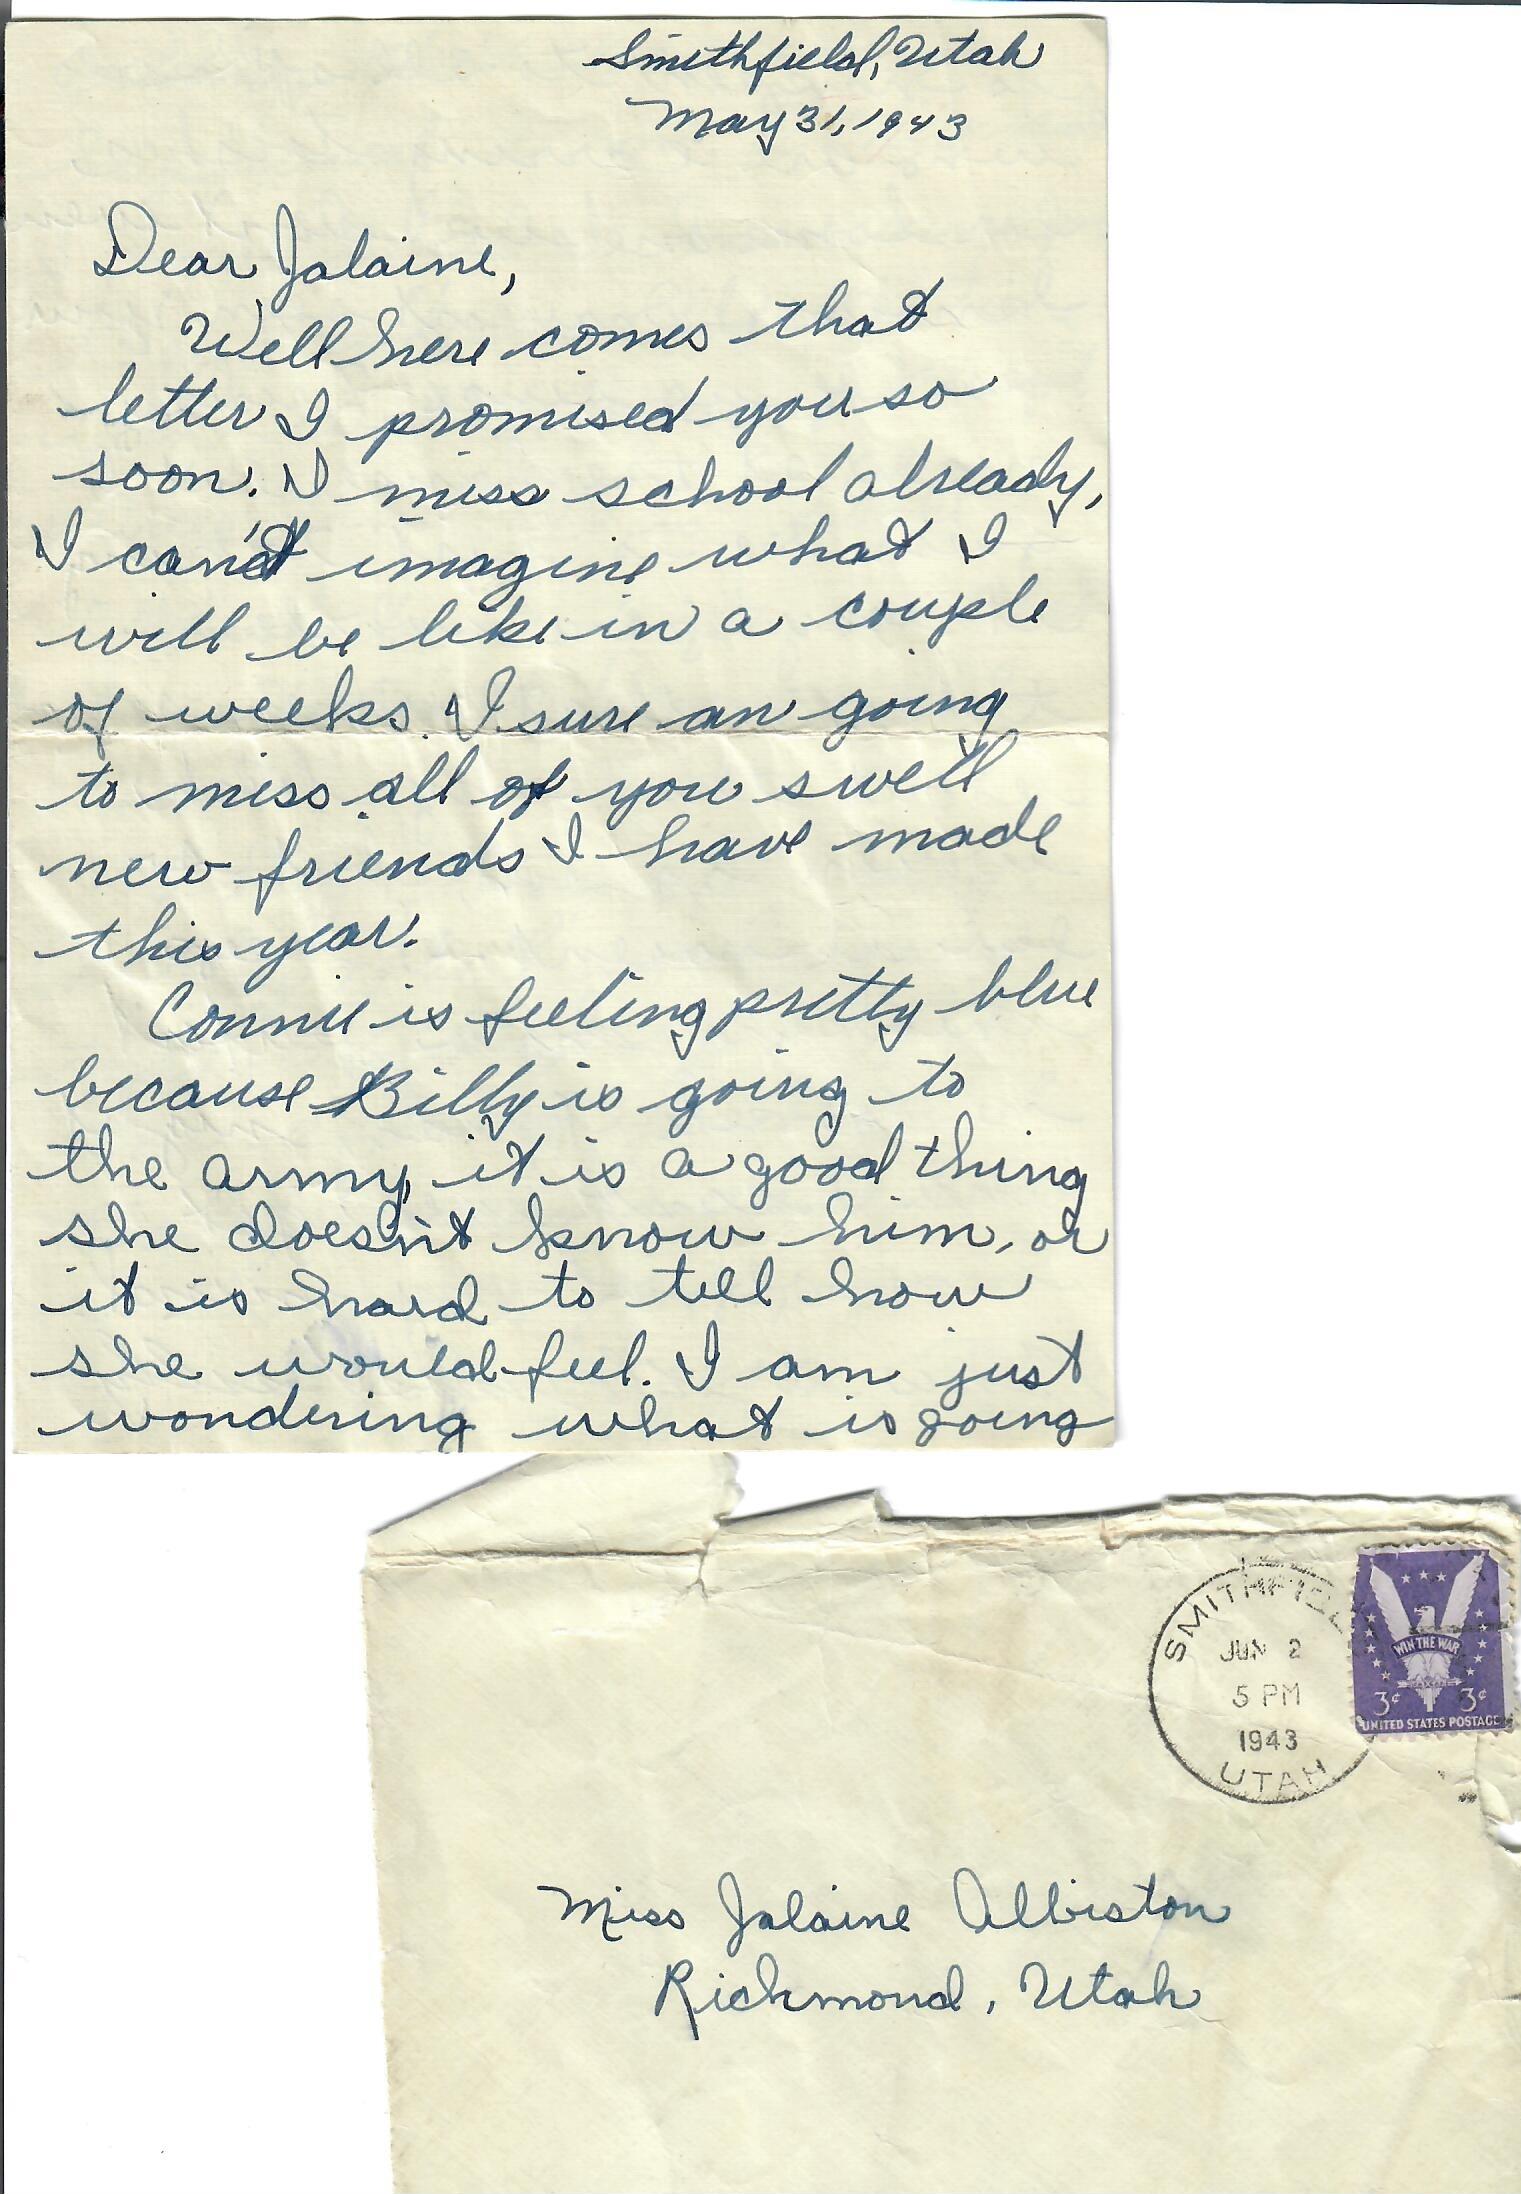 Smithfield, Utah
May 31, 1943
Dear Jalaine,
Well here comes that
letter I promised you so
soon. I miss school already,
I can't imagine what I
will be like in a couple
of weeks. I sure an going
to miss all of you swell
new friends I have made
this year.
Connie is feeling pretty blue
because Billy is going to
the army, it is a good thing
she doesn't know him, or
it is hard to tell how
she would feel. I am just
wondering what is going
SMITHFIEL
JUN 2
5 PM
1943
UTAH
WIN THE WAR
3¢ 3¢
UNITED STATES POSTAGE
Miss Jalaine Albiston
Richmond, Utah